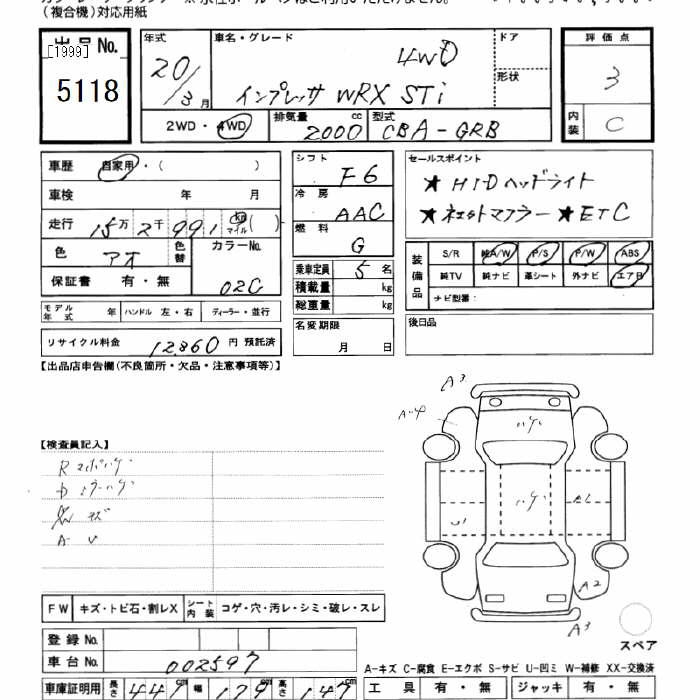 (複合機)対応用紙
出品No.
[1999]
5118
年式 20/3月
車名・グレード 4WD インプレッサ WRX STi
ドア
形状
2WD・4WD
排気量 2000 cc
型式 CBA-GRB
評価点 3
内装 C
車歴 自家用・( )
車検 年 月
走行 15万2千991 km マイル ( )
色 アオ 色替 カラーNo. 02C
保証書 有・無
シフト F6
冷房 AAC
燃料 G
乗車定員 5名
積載量 kg
総重量 kg
セールスポイント
★HIDヘッドライト
★ ★ETC
装備品 S/R 純A/W P/S P/W ABS
純TV 純ナビ 革シート 外ナビ エアB
ナビ型番:
モデル年式 年 ハンドル 左・右 ディーラー・並行
名変期限 月 日
後日品
リサイクル料金 12,860円 預託済
【出品店申告欄(不良箇所・欠品・注意事項等)】
【検査員記入】
A3
A-4
ハゲ
ハゲ
U1
A2
A3
スペア
FW キズ・トビ石・割レX シート内装 コゲ・穴・汚レ・シミ・破レ・スレ
登録No.
車台No. 002597
車庫証明用 長さ 447 幅 179 高さ 147
A-キズ C-腐食 E-エクボ S-サビ U-凹ミ W-補修 XX-交換済
工具 有・無 ジャッキ 有・無